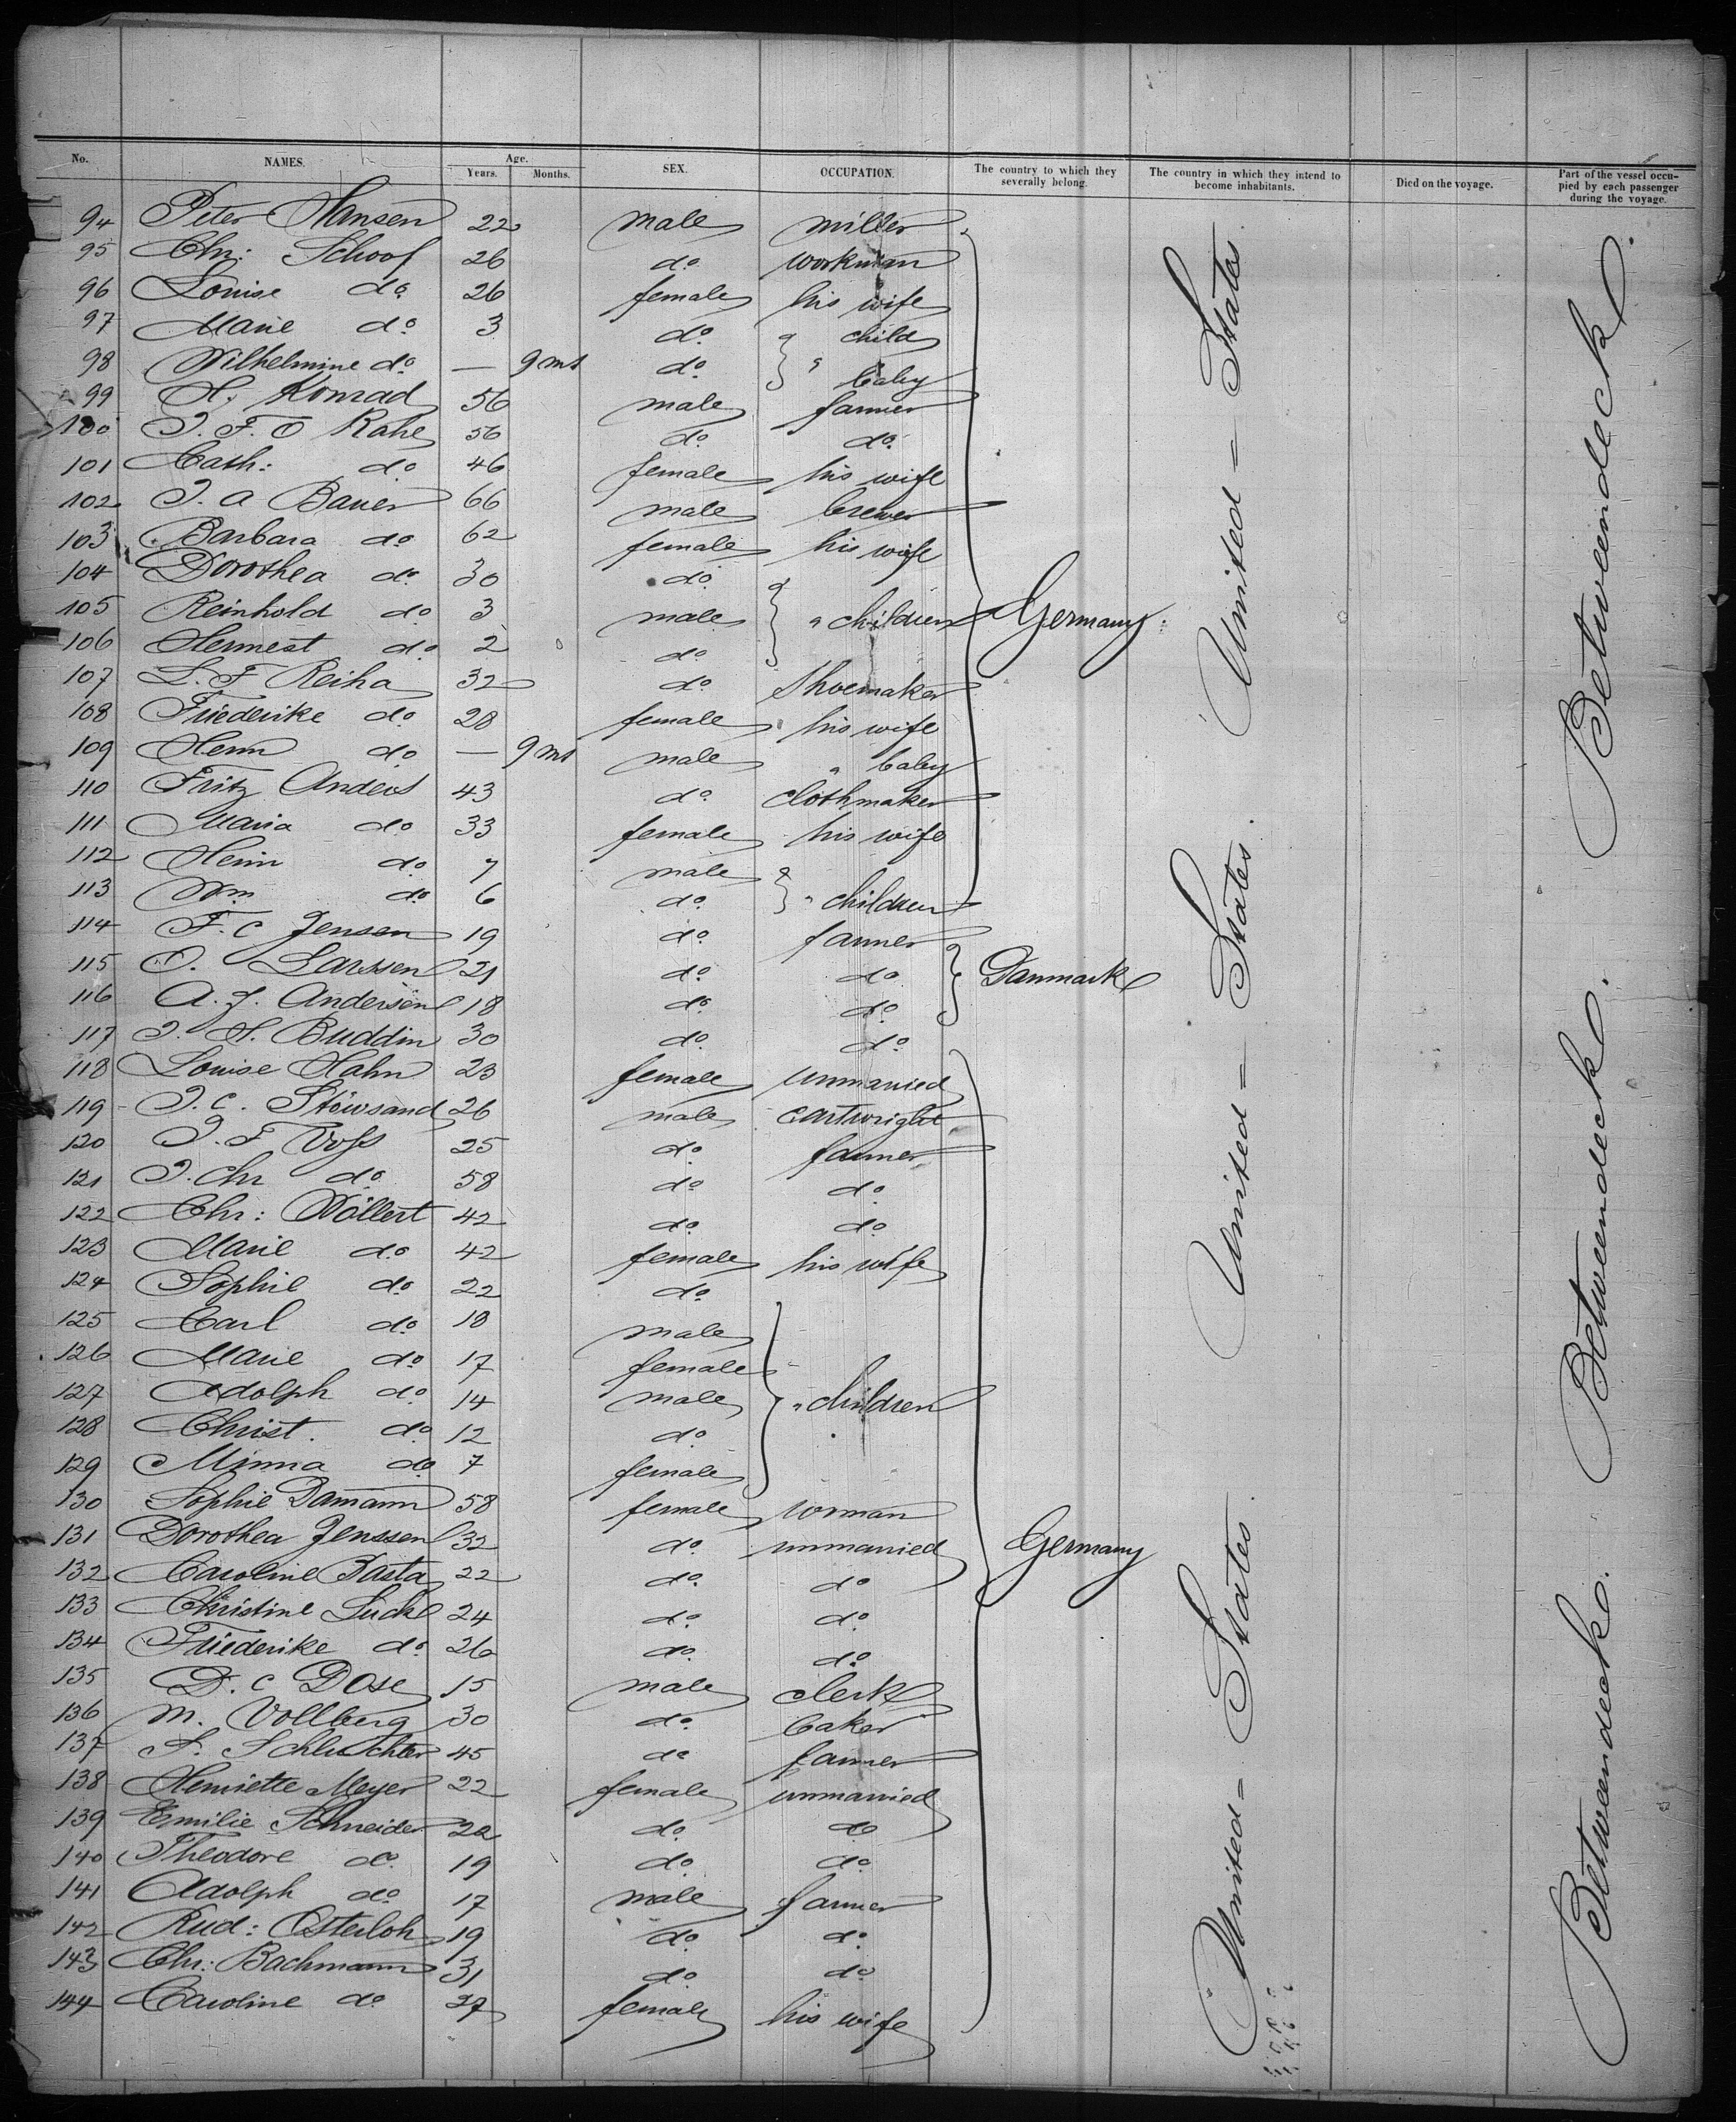 No. NAMES. Age. Years. Months. SEX. OCCUPATION. The country to which they severally belong. The country in which they intend to become inhabitants. Died on the voyage. Part of the vessel occupied by each passenger during the voyage.
94 Peter Hansen 22 male miller
95 Chr: Schoof 26 do. workman
96 Louise do. 26 female his wife
97 Marie do. 3 do. " child
98 Wilhelmine do. — 9 mts do. " baby
99 H. Konrad 56 male farmer
100 J. F. O Rahe 56 do. do.
101 Cath: do. 46 female his wife
102 J. A Bauer 66 male brewer
103 Barbara do. 62 female his wife
104 Dorothea do. 30 do.
105 Reinhold do. 3 male " children Germany.
106 do. 2 do.
107 L. F Reiha 32 do. Shoemaker
108 Friederike do. 28 female his wife
109 Henn do. — 9 mts male " baby
110 Fritz Anders 43 do. Clothmaker
111 Maria do. 33 female his wife
112 Heinr do. 7 male
113 Wm. do. 6 do. " children
114 F. C Jensen 19 do. farmer
115 O. Larssen 21 do. do. Danmark
116 A. J. Andersen 18 do. do.
117 J. H. Buddin 30 do. do.
118 Louise Hahn 23 female unmarried
119 J. C. Stöwsand 26 male cartwright
120 J. F Voss 25 do. farmer
121 J. Chr do. 58 do. do.
122 Chr: Wöllert 42 do. do.
123 Marie do. 42 female his wife
124 Sophie do. 22 do.
125 Carl do. 18 male
126 Marie do. 17 female
127 Adolph do. 14 male " children
128 Christ. do. 12 do.
129 Minna do. 7 female
130 Sophie Damann 58 female woman
131 Dorothea Jenssen 32 do. unmarried Germany
132 Caroline Basta 22 do. do.
133 Christine Lück 24 do. do.
134 Friederike do. 26 do. do.
135 D. C Dose 15 male clerk
136 M. Vollberg 30 do. baker
137 S. Schluchter 45 do. farmer
138 Henriette Meyer 22 female unmarried
139 Emilie Schneider 22 do. do.
140 Theodore do. 19 do. do.
141 Adolph do. 17 male farmer
142 Rud: Osterloh 19 do. do.
143 Chr: Bachmann 31 do. do.
144 Caroline do. 27 female his wife
United = States.
United = States.
United = States.
Betweendeck.
Betweendeck.
Betweendeck.